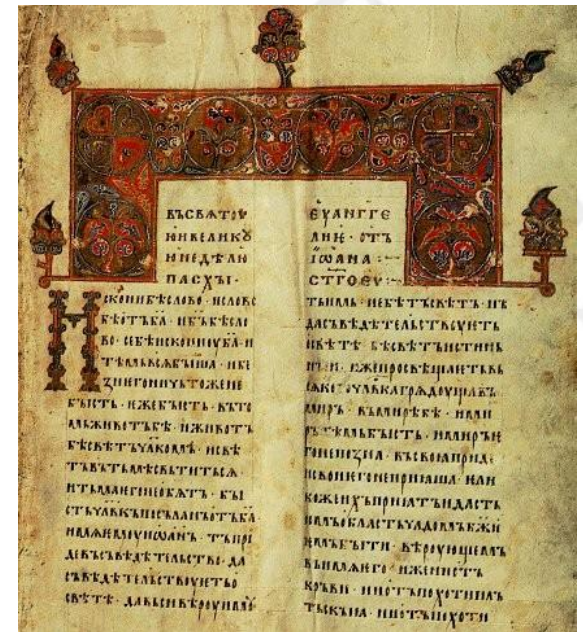 въсвѧтоу
юивеликꙋ
юнедѣлю
пасхы·
Исконибѣслово·ислово
бѣотъба·ибъбѣсло
во·себѣисконноуба·и
тѣмьвсѧбыша·ибе
знегоничьтожене
бысть·ѥжебысть·въто
мьживотъбѣ·иживотъ
бѣсвѣтъчлкомъ·исвѣ
тъвътьмѣсвьтитьсѧ·
итьмаѥгонеобѧтъ·бы
стьчлвкъпосъланъотъба
имѧѥмоуиѡанъ·тъпри
девъсъвѣдѣтельство·да
съвѣдѣтельствоуѥтьо
свѣтѣ·давьсивѣроу
еуангге
лиѥ·отъ
іѡана·:~
стгоеу·:~
тьимь·небѣтъсвѣтъ·нъ
дасъвѣдѣтельствоуѥть
освѣтѣ·бѣсвѣтъистинь
ныи·ижепросвѣщаѥтьвь
сѧкогочлвкагрѧдоущавъ
миръ·въмирѣбѣ·ими
рътѣмьбысть·имиръѥ
гонепозна·въсвоꙗприде
исвоиѥгонеприꙗша·ѥли
кожеихъприꙗтъидасть
имъобластьчадомъбжи
ѥмъбыти·вѣроующемъ
въимѧѥго·иженеотъ
кръви·ниотъпохотипль
тьскыꙗ·ниотъпохоти